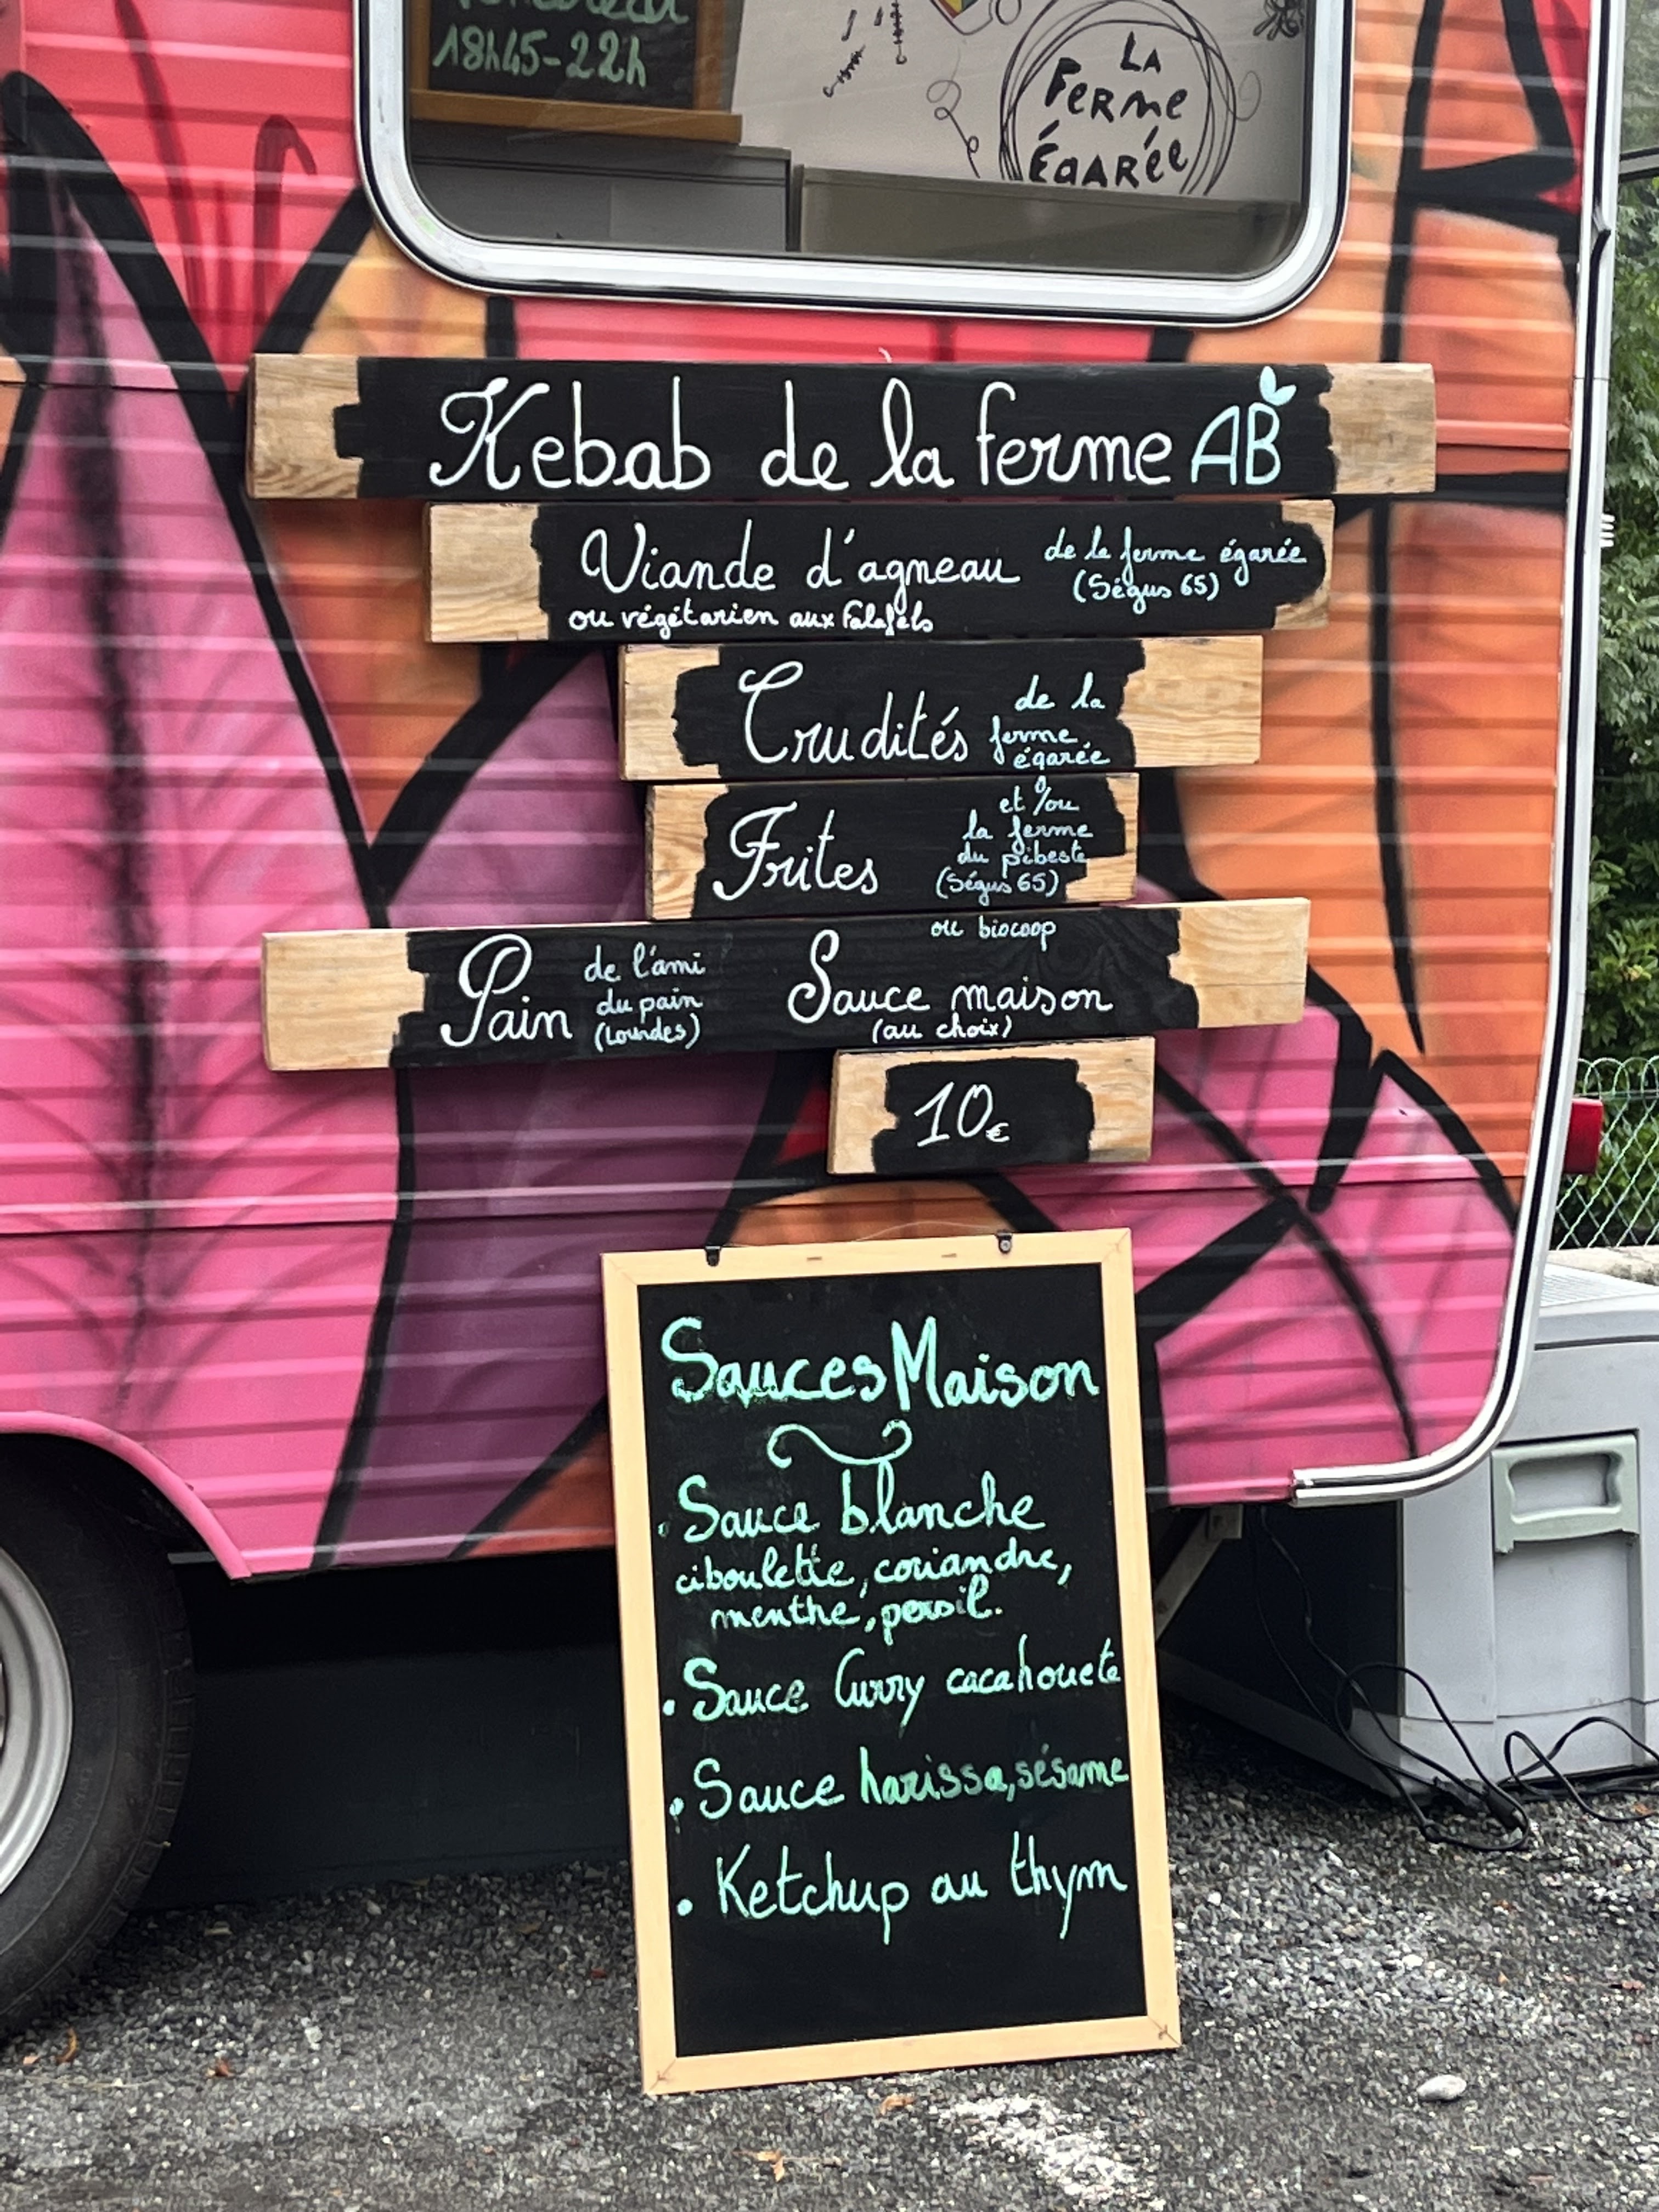 18h45-22h
LA
FERME
ÉGARÉE
Kebab de la ferme AB
Viande d'agneau de la ferme égarée
(Ségus 65)
ou végétarien aux falafels
Crudités de la
ferme
égarée
et /ou
Frites la ferme
du pibeste
(Ségus 65)
ou biocoop
Pain de l'ami
du pain
(Lourdes)
Sauce maison
(au choix)
10€
Sauces Maison
. Sauce blanche
ciboulette, coriandre,
menthe, persil.
. Sauce Curry cacahouete
. Sauce harissa, sésame
. Ketchup au thym